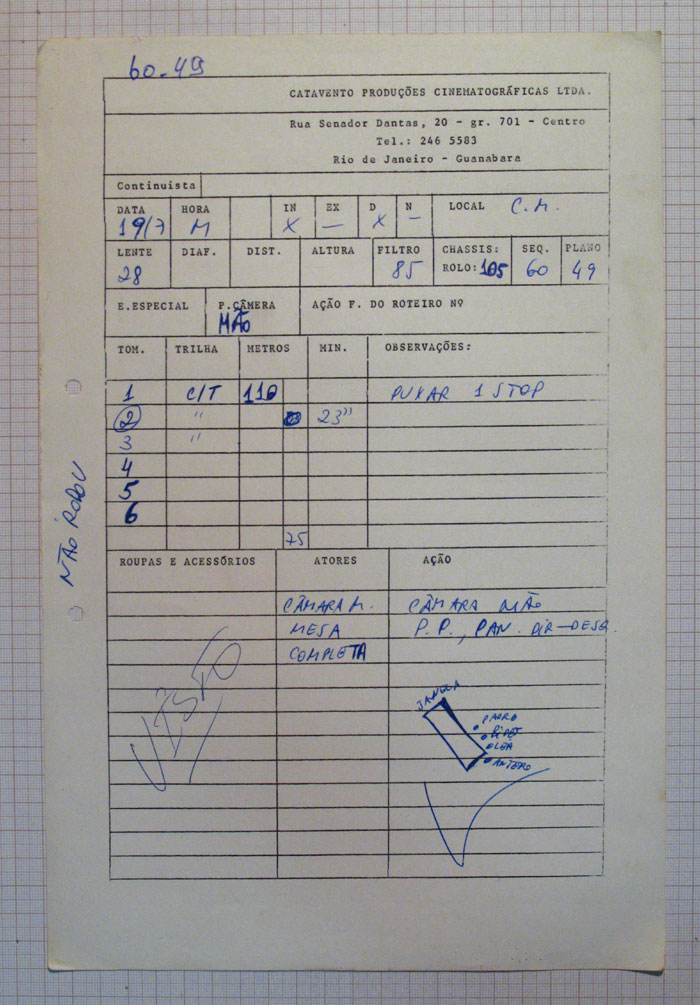 60.49
CATAVENTO PRODUÇÕES CINEMATOGRÁFICAS LTDA.
Rua Senador Dantas, 20 - gr. 701 - Centro
Tel.: 246 5583
Rio de Janeiro - Guanabara
Continuista
DATA HORA IN EX D N LOCAL C.M.
19/7 M X — X —
LENTE DIAF. DIST. ALTURA FILTRO CHASSIS: SEQ. PLANO
28 85 ROLO: 105 60 49
E.ESPECIAL P.CÂMERA AÇÃO F. DO ROTEIRO Nº
MÃO
TOM. TRILHA METROS MIN. OBSERVAÇÕES:
1 C/T 110 PUXAR 1 STOP
2 " 23"
3 "
4
5
6
75
NÃO RODOU
ROUPAS E ACESSÓRIOS ATORES AÇÃO
CÂMARA M. CÂMARA MÃO
MESA P.P., PAN. DIR-DESQ.
COMPLETA
VISTO
JANELA
PAdRO
LÉA
ANTERO